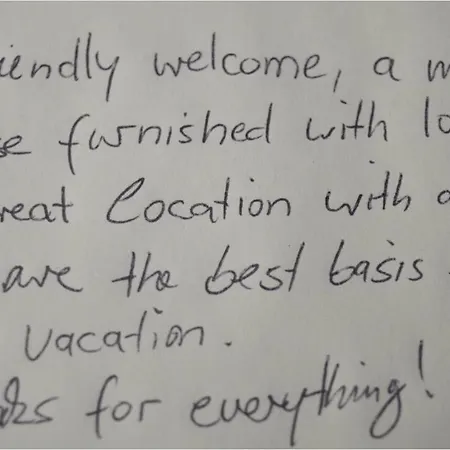 iendly welcome, a m
se furnished with lo
reat location with a
ave the best basis
vacation.
ks for everything!